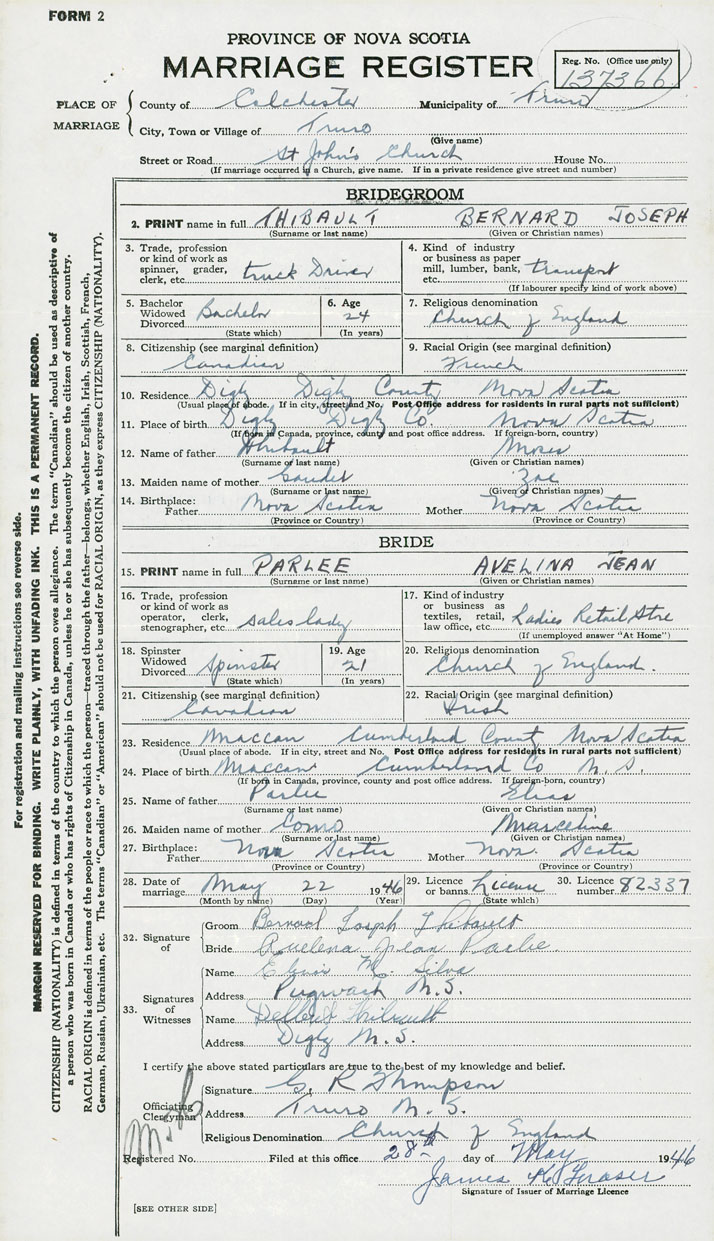 FORM 2
PROVINCE OF NOVA SCOTIA
MARRIAGE REGISTER
Reg. No. (Office use only)
137366
PLACE OF MARRIAGE
County of Colchester Municipality of Truro
City, Town or Village of Truro
(Give name)
Street or Road St John's Church House No.
(If marriage occurred in a Church, give name. If in a private residence give street and number)
BRIDEGROOM
2. PRINT name in full THIBAULT BERNARD JOSEPH
(Surname or last name) (Given or Christian names)
3. Trade, profession or kind of work as spinner, grader, clerk, etc. truck Driver
4. Kind of industry or business as paper mill, lumber, bank, etc. transport
(If labourer specify kind of work above)
5. Bachelor Widowed Divorced Bachelor
(State which)
6. Age 24
(In years)
7. Religious denomination
Church of England
8. Citizenship (see marginal definition)
Canadian
9. Racial Origin (see marginal definition)
French
10. Residence Digby Digby County Nova Scotia
(Usual place of abode. If in city, street and No. Post Office address for residents in rural parts not sufficient)
11. Place of birth Digby Digby Co. Nova Scotia
(If born in Canada, province, county and post office address. If foreign-born, country)
12. Name of father Thibault Moses
(Surname or last name) (Given or Christian names)
13. Maiden name of mother Gaudet Zoe
(Surname or last name) (Given or Christian names)
14. Birthplace: Father Nova Scotia Mother Nova Scotia
(Province or Country) (Province or Country)
BRIDE
15. PRINT name in full PARLEE AVELINA JEAN
(Surname or last name) (Given or Christian names)
16. Trade, profession or kind of work as operator, clerk, stenographer, etc. sales lady
17. Kind of industry or business as textiles, retail, law office, etc. Ladies Retail Store
(If unemployed answer "At Home")
18. Spinster Widowed Divorced Spinster
(State which)
19. Age 21
(In years)
20. Religious denomination
Church of England.
21. Citizenship (see marginal definition)
Canadian
22. Racial Origin (see marginal definition)
Irish
23. Residence Maccan Cumberland County Nova Scotia
(Usual place of abode. If in city, street and No. Post Office address for residents in rural parts not sufficient)
24. Place of birth Maccan Cumberland Co N.S.
(If born in Canada, province, county and post office address. If foreign-born, country)
25. Name of father Parlee Elias
(Surname or last name) (Given or Christian names)
26. Maiden name of mother Como Marceline
(Surname or last name) (Given or Christian names)
27. Birthplace: Father Nova Scotia Mother Nova Scotia
(Province or Country) (Province or Country)
28. Date of marriage May 22 1946
(Month by name) (Day) (Year)
29. Licence or banns License
(State which)
30. Licence number 82337
32. Signature of
Groom Bernard Joseph Thibault
Bride Avelena Jean Parlee
33. Signatures of Witnesses
Name M. Silva
Address Pugwash N.S.
Name Thibault
Address Digby N.S.
I certify the above stated particulars are true to the best of my knowledge and belief.
Officiating Clergyman
Signature G. R Thompson
Address Truro N.S.
Religious Denomination Church of England
Registered No. Filed at this office 28th day of May 1946
James Fraser
Signature of Issuer of Marriage Licence
[SEE OTHER SIDE]
For registration and mailing instructions see reverse side.
MARGIN RESERVED FOR BINDING. WRITE PLAINLY, WITH UNFADING INK. THIS IS A PERMANENT RECORD.
CITIZENSHIP (NATIONALITY) is defined in terms of the country to which the person owes allegiance. The term "Canadian" should be used as descriptive of
a person who was born in Canada or who has rights of Citizenship in Canada, unless he or she has subsequently become the citizen of another country.
RACIAL ORIGIN is defined in terms of the people or race to which the person—traced through the father—belongs, whether English, Irish, Scottish, French,
German, Russian, Ukrainian, etc. The terms "Canadian" or "American" should not be used for RACIAL ORIGIN, as they express CITIZENSHIP (NATIONALITY).